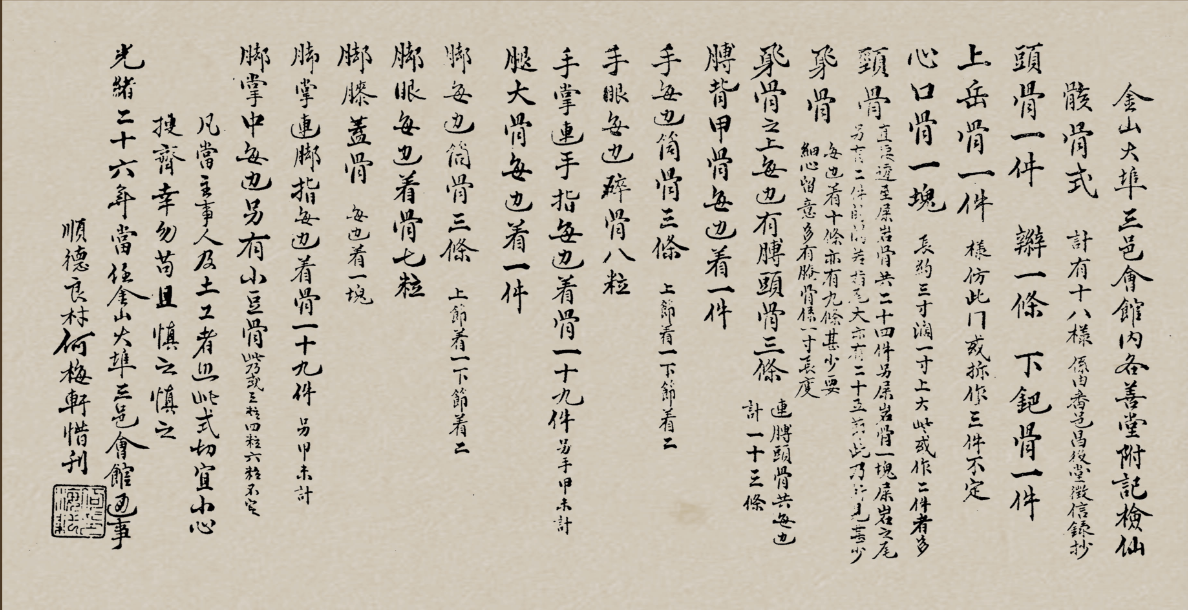 金山大埠三邑會館內各善堂附記檢仙
骸骨式 計有十八樣 係由番邑昌後堂徵信錄抄
頭骨一件 辮一條 下鈀骨一件
上岳骨一件 樣仿此门 或拆作三件不定
心口骨一塊 長約三寸濶一寸上大 此或作二件者多
頸骨 直 至屎岩骨共二十四件另屎岩骨一塊屎岩之尾
另有二件 尾大亦有二十五 此乃 見甚少
𠃧骨 每边着十條亦有九條甚少要
細心留意多有 骨係一寸長度
𠃧骨之上每边有膊頭骨三條 連膊頭骨共每边
計一十三條
膊背甲骨每边着一件
手每边筒骨三條 上節着一下節着二
手眼每边碎骨八粒
手掌連手指每边着骨一十九件 另手甲未計
腿大骨每边着一件
脚每边筒骨三條 上節着一下節着二
脚眼每边着骨七粒
脚膝蓋骨 每边着一塊
脚掌連脚指每边着骨一十九件 另甲未計
脚掌中每边另有小豆骨 此乃或三粒四粒六粒不定
凡當主事人及土工者照此式切宜小心
搜齊幸勿苟且慎之慎之
光緒二十六年當任金山大埠三邑會館通事
順德良村何梅軒惜刋